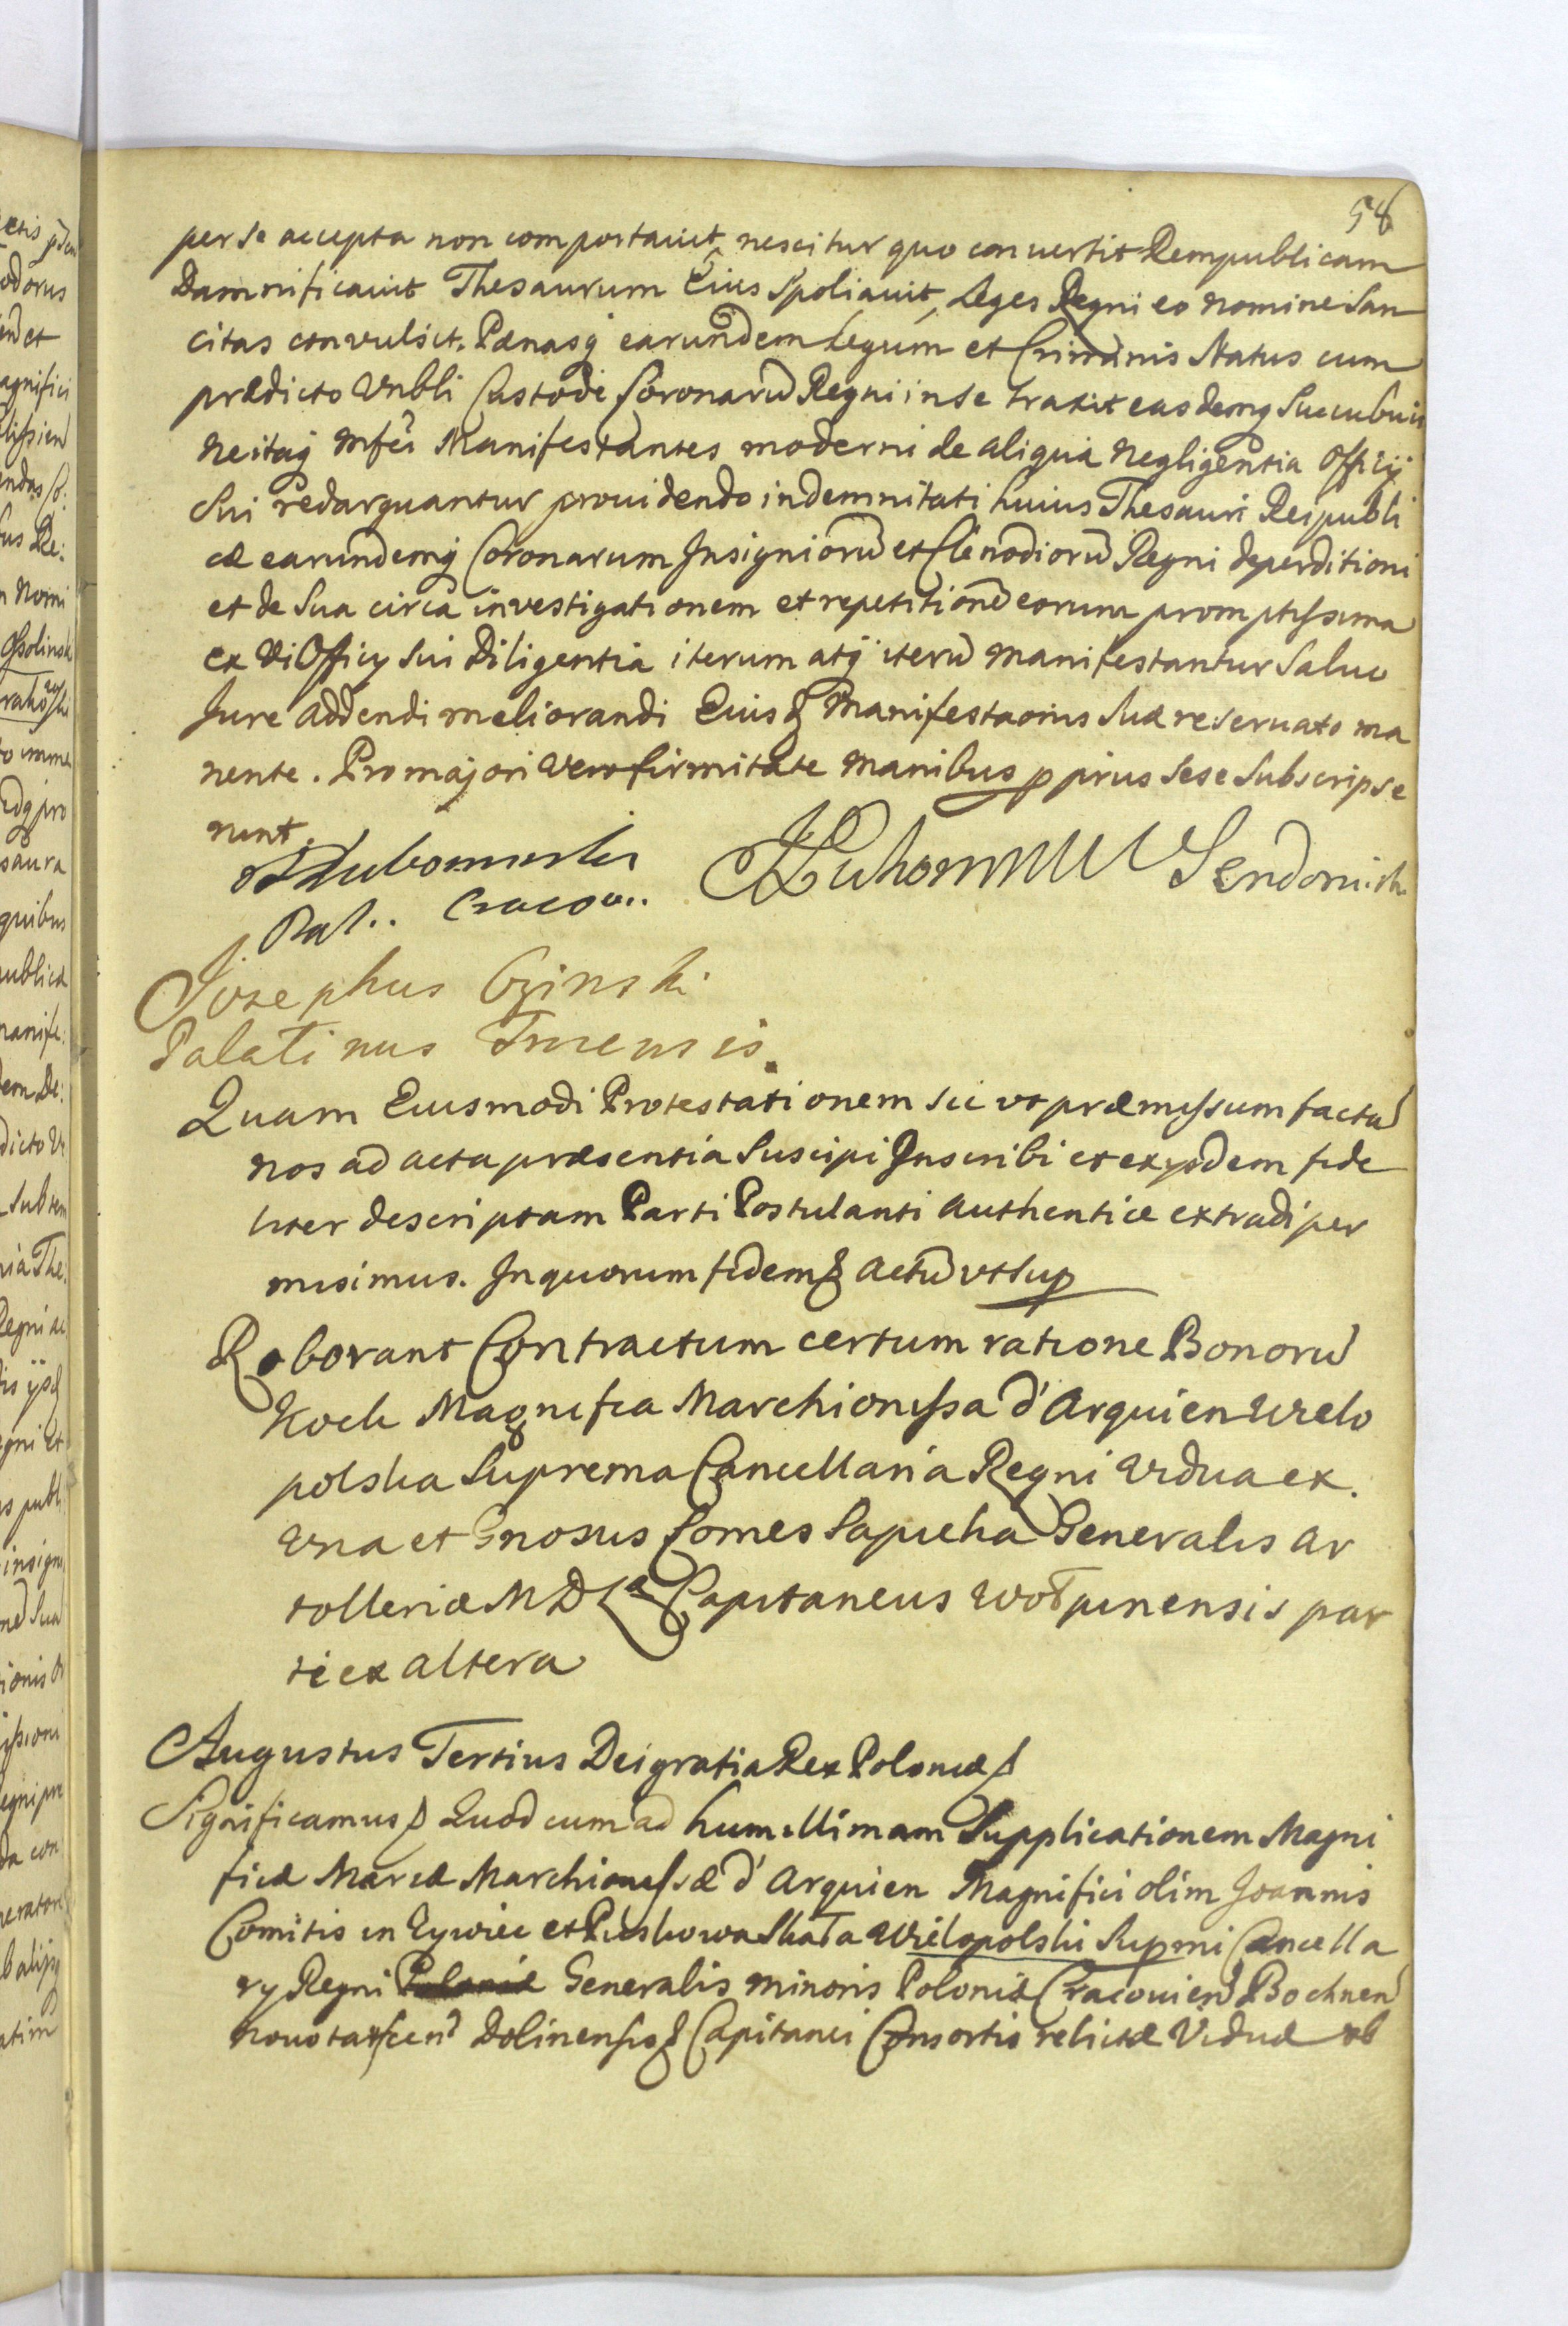 58
per se accepta non comportavit, nescitur quo convertit Rempublicam
Damnificavit Thesaurum Eius Spoliavit, Leges Regni eo nomine San
citas convulsit. Pænasq earundem Legum et Criminis Natus cum
prædicto Vnbli Custode Coronarū Regni in se traxit easdemq Succubuit
Ne itaq Mfci Manifestantes moderni de aliqua Negligentia Officij
Sui redarguantur providendo indemnitati huius Thesauri Reipubli
cæ earundemq Coronarum Insigniorū et Clenodiorū Regni deperditioni
et de Sua circa investigationem et repetitionē eorum promptissima
ex Vi Officy Sui Diligentia iterum atq iterū Manifestantur Salvo
Jure Addendi meliorandi Eiusq Manifestaonis Suæ reservato ma
nente. Pro majori Vero firmitate Manibus pprius sese Subscripse
runt.
Lubomirski
Pal.. Cracov.. Sendomirs
Josephus Oginski
Palatinus Trocensis.
Quam Eiusmodi Protestationem sic vt præmissum factā
nos ad acta præsentia Suscipi Inscribi et ex ijsdem fide
liter descriptam Parti Postulanti Authentice extradi per
misimus. In quorum fidem Actū vt sup
Roborant Contractum certum ratione Bonorū
Kock Magnifica Marchionissa d'Arquien Wielo
polska Suprema Cancellaria Regni Vidua ex.
Vna et Gnosus Comes Sapieha Generalis Ar
tolleriæ M D L Capitaneus Wołpinensis par
te ex altera
Augustus Tertius Dei gratia Rex Poloniæ
Significamus Quod cum ad humillimam Supplicationem Magni
ficæ Mariæ Marchionissæ d'Arquien Magnifici olim Joannis
Comitis in Zywiec et Pieskowa Skała Wielopolski Supmi Cancella
ry Regni Poloniæ Generalis minoris Poloniæ Cracovien Bochnen
Novotarscen Dolinensis Capitanei Consortis relictæ Viduæ ab